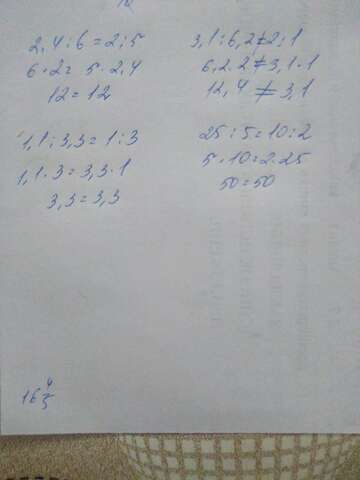 2,4 : 6 = 2 : 5
6 · 2 = 5 · 2,4
12 = 12
3,1 : 6,2 ≠ 2 : 1
6,2 · 2 ≠ 3,1 · 1
12,4 ≠ 3,1
1,1 : 3,3 = 1 : 3
1,1 · 3 = 3,3 · 1
3,3 = 3,3
25 : 5 = 10 : 2
5 · 10 = 2 · 25
50 = 50